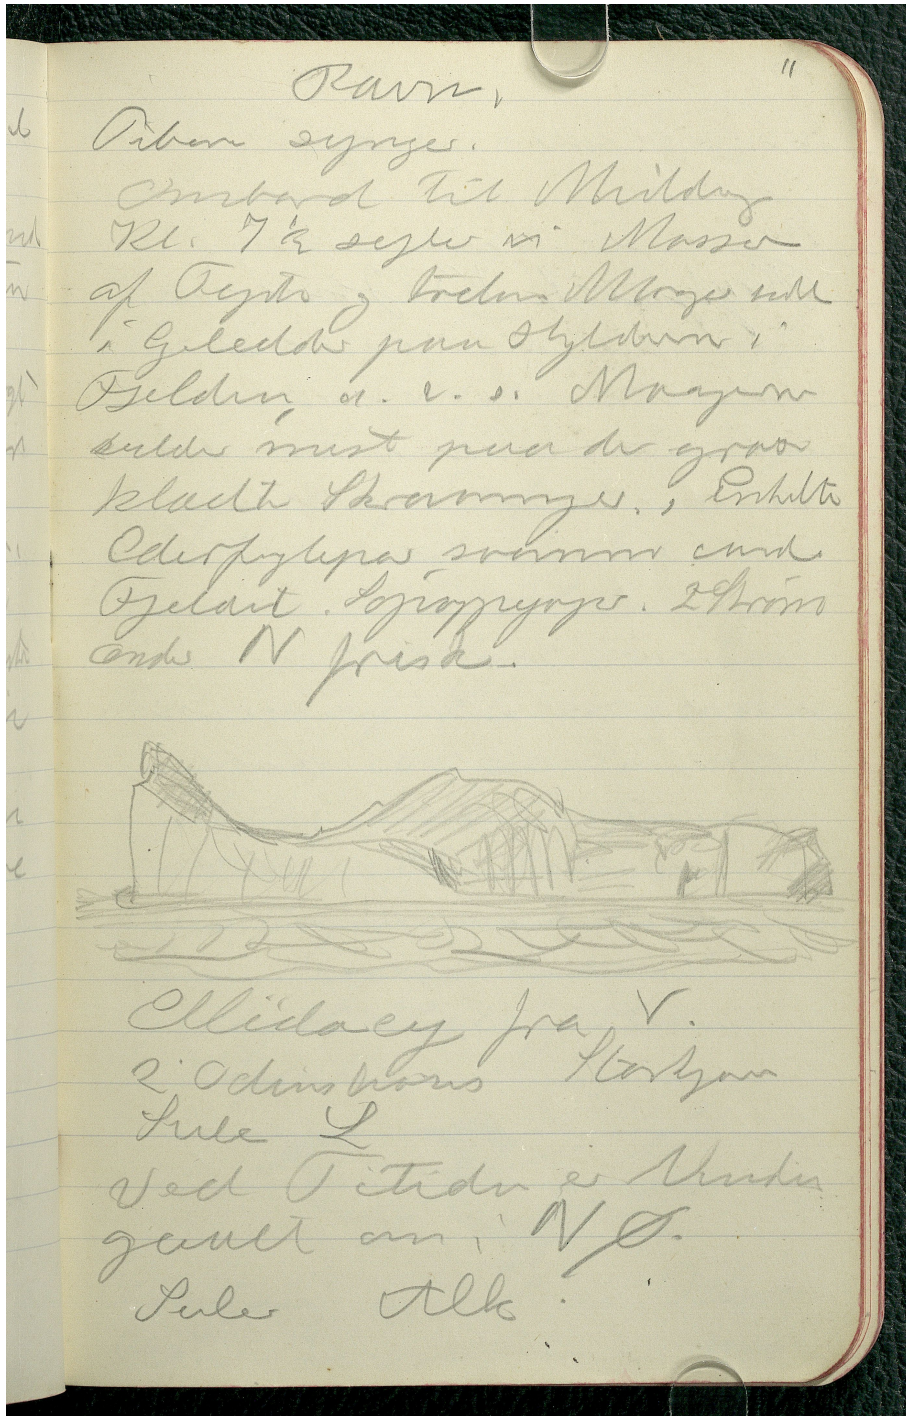 11
Ravn.
Piben synger.
Ombord til Middag
Kl. 7½ sejler vi Masser
af Tejste og treden Maager sidde
i Geledder paa Hylderne i
Fjeldene, o. s. v. Maagerne
sidder mest paa de græs
klædte Skrænninger., Enkelte
Ederfuglepar svømme und.
Fjeldet. Søpapegøjer. 2 Strøm
ender N frisk.
Myidacy fra V.
2 Odinshøns Storkjove
Sule L
Ved Titiden er Vinden
gaaet om i NØ.
Suler Alk